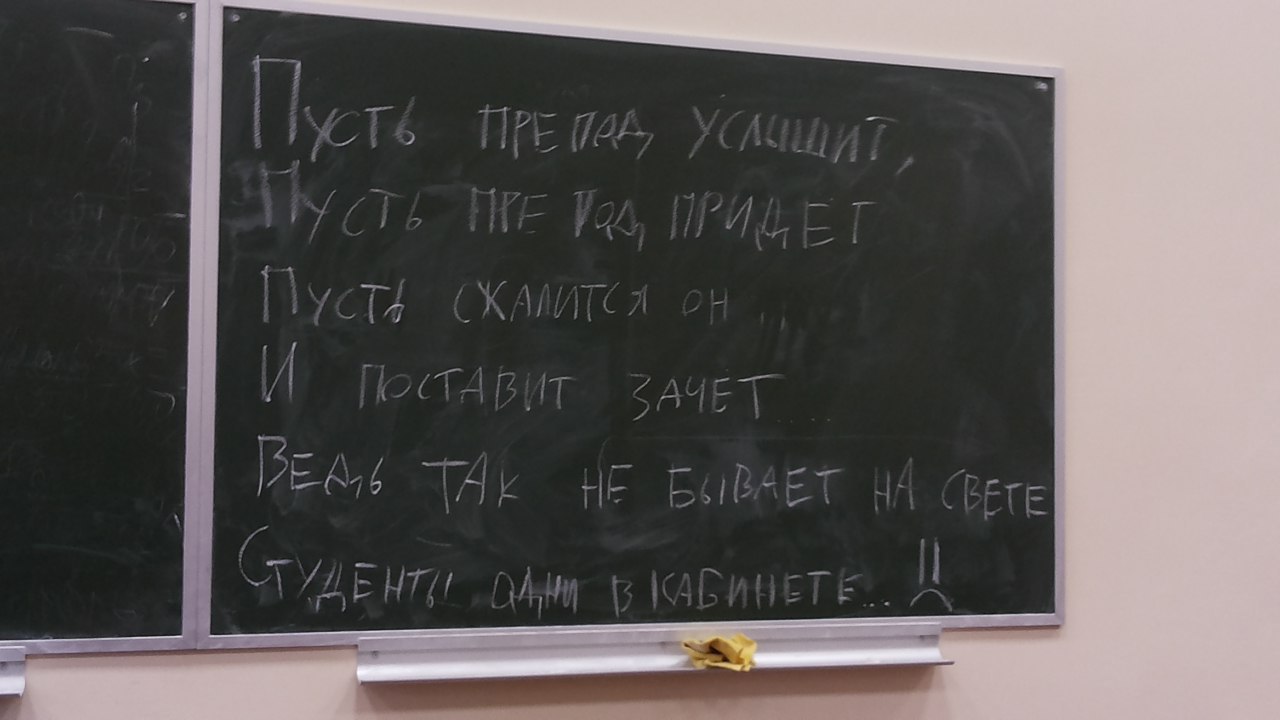 Пусть препод услышит,
Пусть препод придет
Пусть сжалится он
И поставит зачет
Ведь так не бывает на свете
Студенты одни в кабинете...